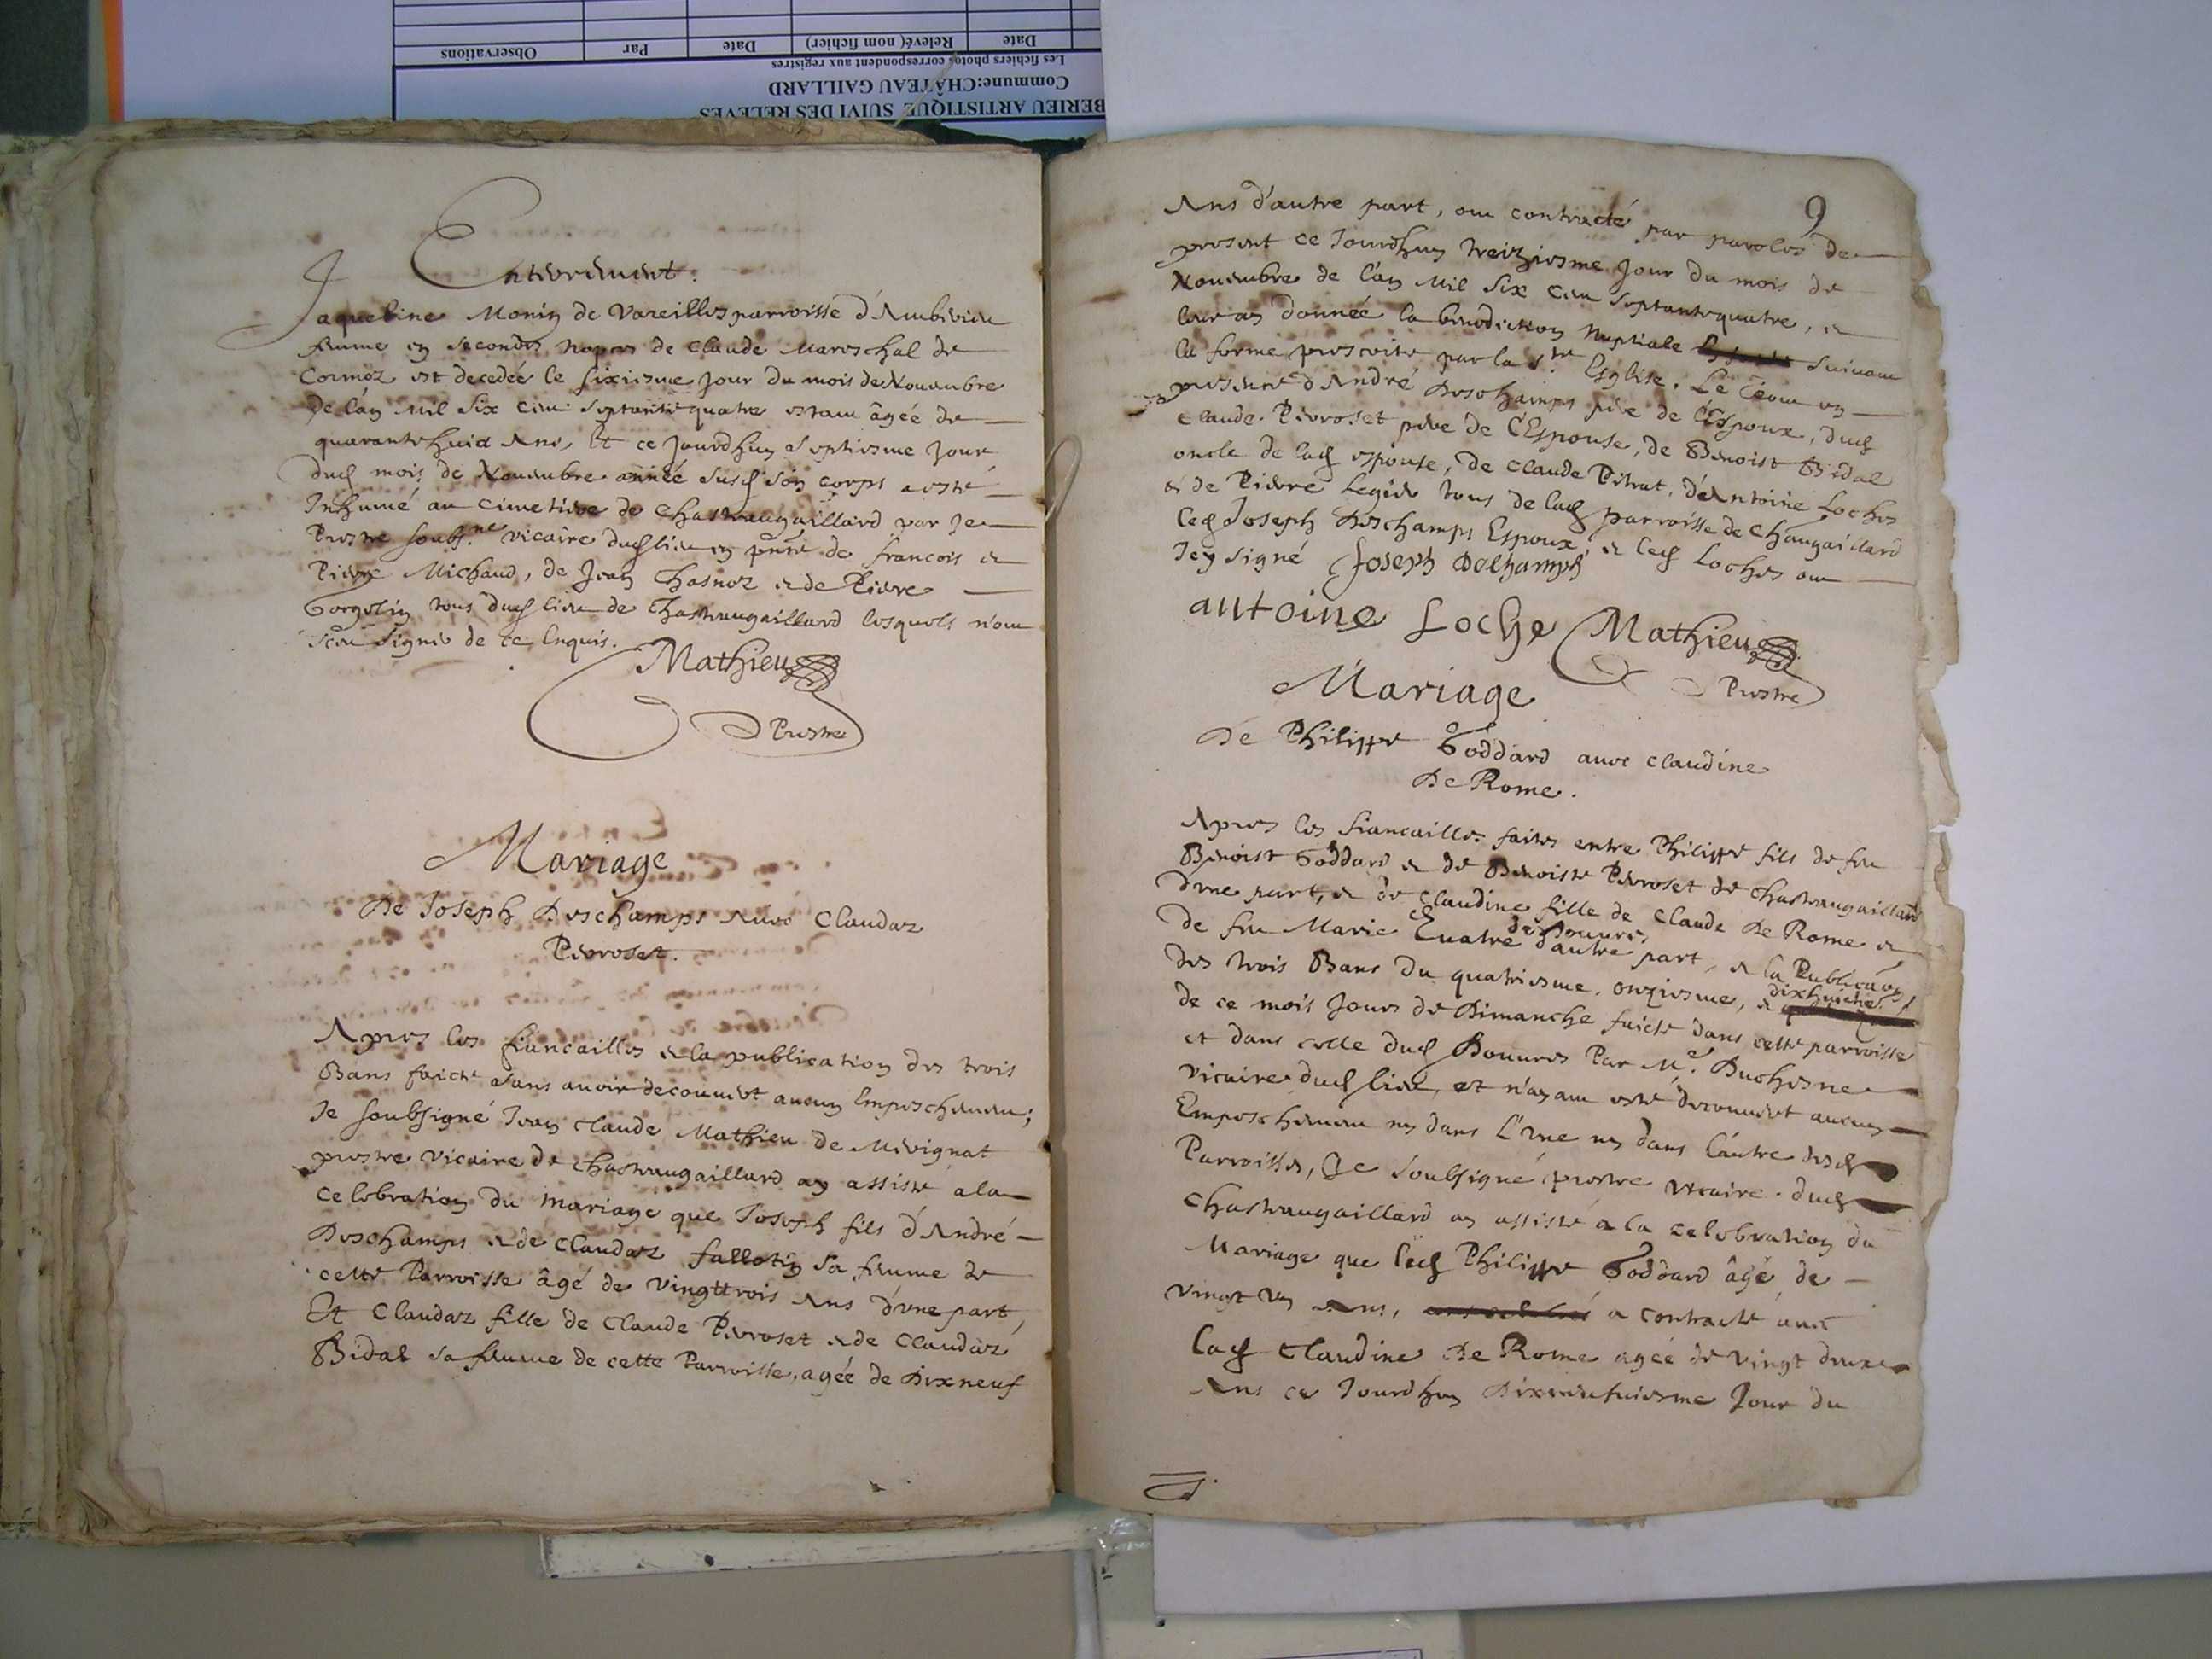 BERIEU ARTISTIQUE SUIVI DES RELEVES
Commune:CHÂTEAU GAILLARD
Les fichiers photos correspondent aux registres
Date Relevé( nom fichier) Date Par Observations
Enterrement.
Jaqueline Monin de Vareilles parroisse d'Ambevieu
femme en secondes nopces de Claude Mareschal de
Cormoz est decedeé le sixiesme Jour du mois de Nouembre
de l'an Mil Six cent Septante quatre estant âgée de
quarante huict Ans, Et ce Jourdhuy Septiesme Jour
dud mois de Nouembre année susd son corps a esté
Inhumé au cimetiere de Chasteaugaillard par Je
Prestre soubs.né vicaire dud lieu en pñce de francois &
Pierre Michaud, de Jean Chasnoz & de Pierre
Gorgelin tous dud lieu de Chasteaugaillard lesquels n'ont
sceu signer de ce Enquis.
Mathieu
Prestre
Mariage
De Joseph Deschamps Auec Claudaz
Perroset.
Apres les fiancailles & la publication des trois
Bans faicte sans auoir decouuert aucun Empeschement;
Je soubsigné Jean Claude Mathieu de Merignat
prestre vicaire de Chasteaugaillard ay assisté a la
celebration du mariage que Joseph fils d'André
Deschamps & de Claudaz fallotin Sa femme de
cette Parroisse âgé de vingttrois Ans d'vne part,
Et Claudaz fille de Claude Perroset & de Claudaz
Bidal sa femme de cette Parroisse, agée de Dixneuf
9
Ans d'autre part, ont contracté par paroles de
present ce Jourdhuy treiziesme Jour du mois de
Nouembre de l'an Mil Six Cent Septantequatre, &
leur ay donnée la benediction Nuptiale suiuant
la forme prescrite par la s.te Esglise. Le tout en
presence d'André Deschamps pere de l'Espoux, dud
Claude Perroset pere de l'Espouse, de Benoist Bidal
oncle de lad espouse, de Claude Pitrat, d'Antoine Loches
& de Pierre Legier tous de lad parroisse de Chaugaillard
led Joseph Deschamps Espoux, & led Loches ont
Icy signé Joseph Deschamps
antoine Loche Mathieu
Prestre
Mariage
De Philippe Goddard auec Claudine
De Rome.
Apres les fiancailles faites entre Philippe fils de feu
Benoist Goddard & de Benoiste Perroset de Chasteaugaillard
d'vne part, & de Claudine fille de Claude De Rome &
de feu Marie de Douures d'autre part, & la Publication
des trois Bans du quatriesme, onziesme, & dixhuictie.
de ce mois Jours de Dimanche faicte dans cette parroisse
et dans celle dud Douures Par M.e Duchesne
vicaire dud lieu, et n'ayant esté decouuert aucun
Empeschement ny dans L'vne ny dans l'autre desd
Parroisses, Je soubsigné prestre vicaire dud
Chasteaugaillard ay assisté a la celebration du
Mariage que led Philippe Goddard âgé de
vingt vn Ans, a contracté auec
lad Claudine De Rome agée de vingt deux
Ans ce Jourdhuy Dixneufuiesme Jour du